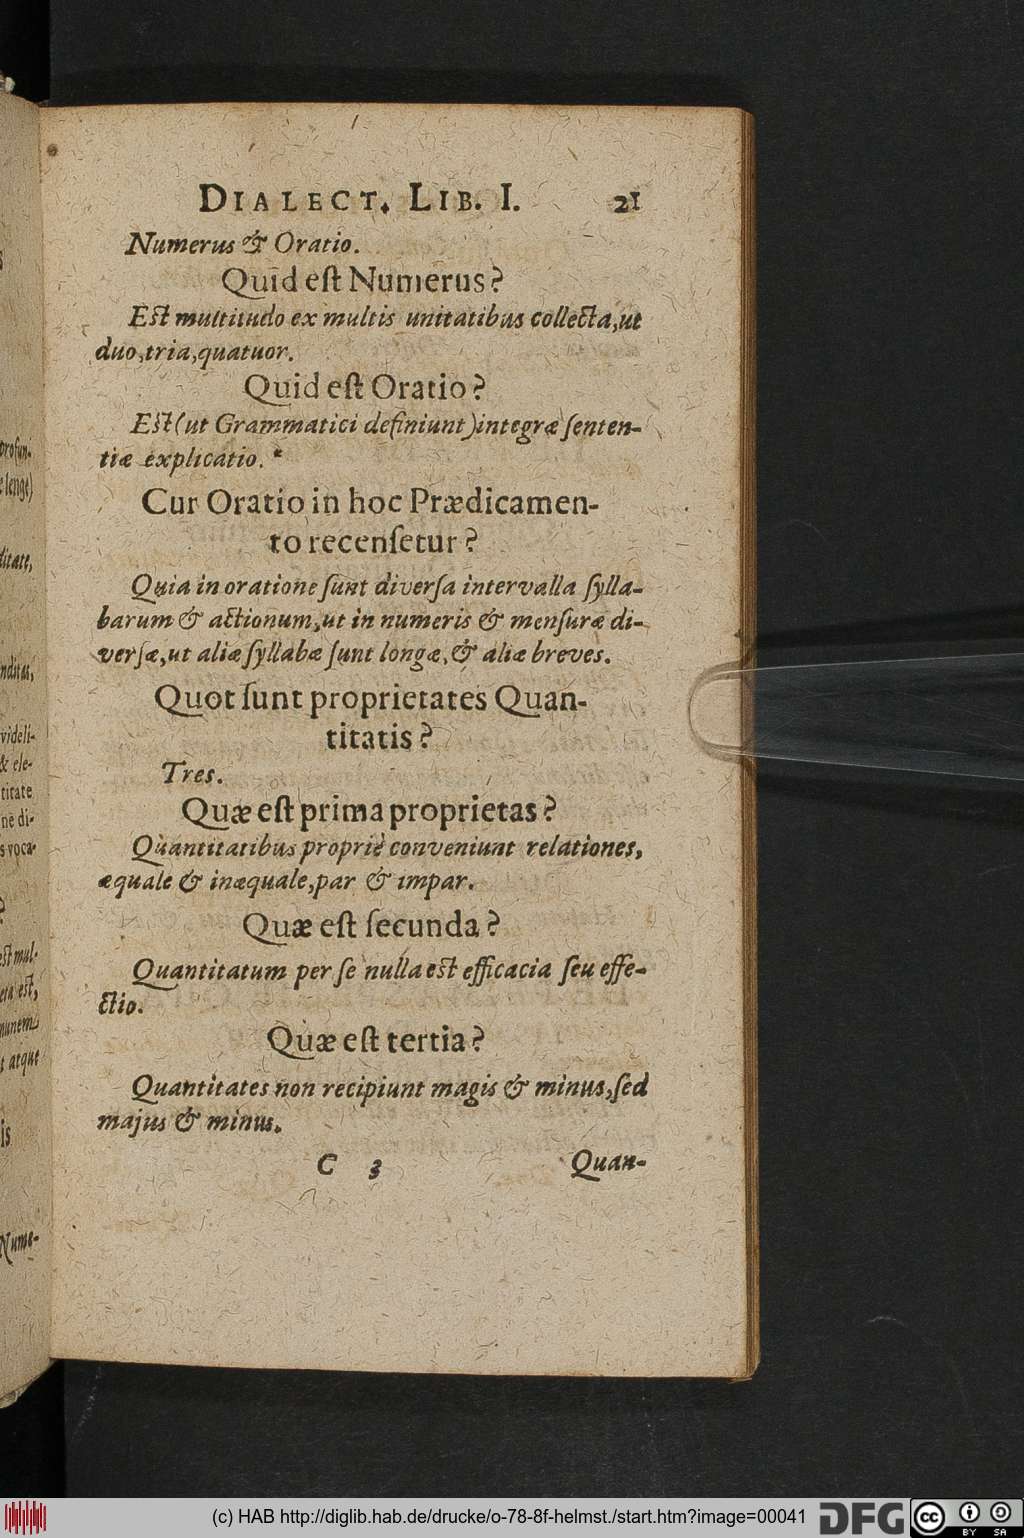 DIALECT. LIB. I. 21
Numerus & Oratio.
Quid eſt Numerus?
Eſt multitudo ex multis unitatibus collecta, ut
duo, tria, quatuor.
Quid eſt Oratio?
Eſt (ut Grammatici definiunt) integræ ſenten-
tiæ explicatio.
Cur Oratio in hoc Prædicamen-
to recenſetur?
Quia in oratione ſunt diverſa intervalla ſylla-
barum & actionum, ut in numeris & menſuræ di-
verſæ, ut aliæ ſyllabæ ſunt longæ, & aliæ breves.
Quot ſunt proprietates Quan-
titatis?
Tres.
Quæ eſt prima proprietas?
Quantitatibus propriè conveniunt relationes,
æquale & inæquale, par & impar.
Quæ eſt ſecunda?
Quantitatum per ſe nulla eſt efficacia ſeu effe-
ctio.
Quæ eſt tertia?
Quantitates non recipiunt magis & minus, ſed
majus & minus.
C 3 Quan-
profun-
longe)
nditas,
videli-
& ele-
titate
ne di-
s voca-
eſt mul-
eſt,
t atque
is
Nume-
(c) HAB http://diglib.hab.de/drucke/o-78-8f-helmst./start.htm?image=00041
DFG
cc BY SA